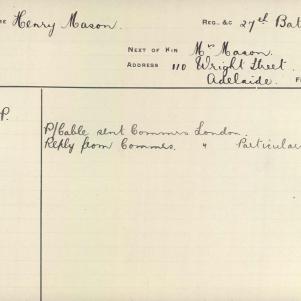 ME Henry Mason. REG. &c 27th Bat
NEXT OF KIN Mr Mason.
ADDRESS 110 Wright Street
Adelaide.
P.
P/Cable sent Commrs London.
Reply from Commrs. " Particular